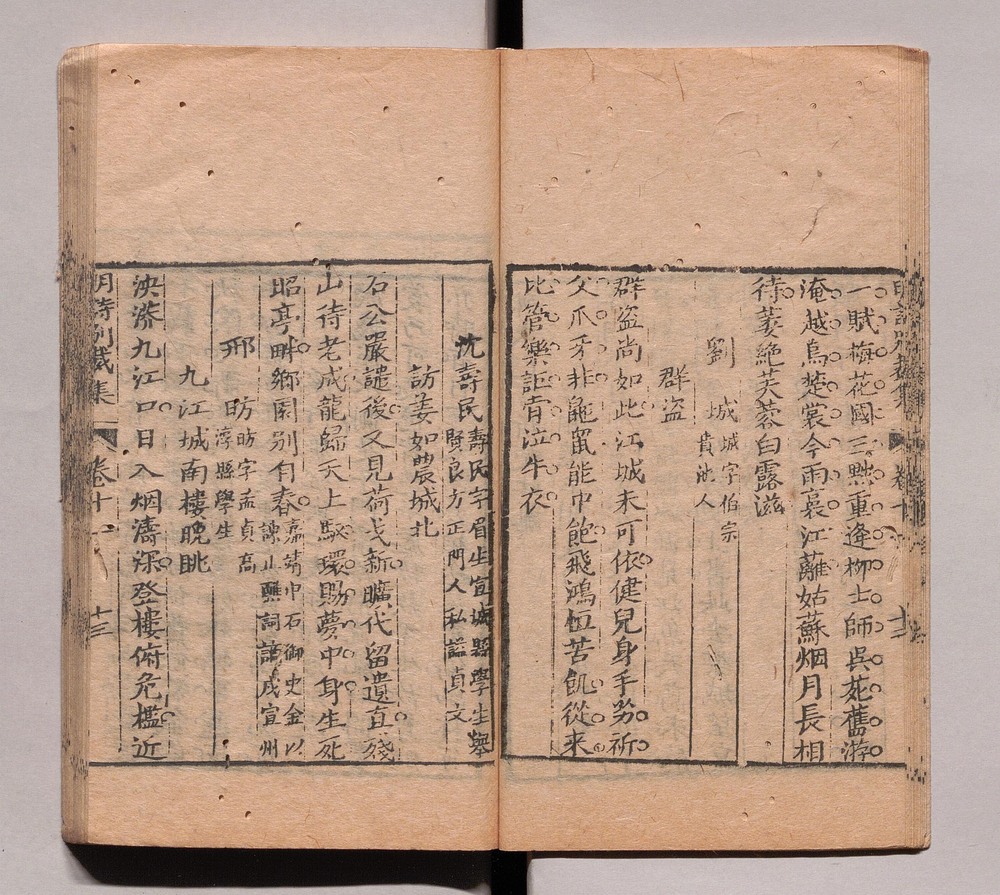 一賦梅花國三黜重逢柳士師吳苑舊游
淹越鳥楚裳今雨裛江蘺姑蘇烟月長相
待蓑絶芙蓉白露滋
劉城城字伯宗
貴池人
群盗
群盗尚如此江城未可依健兒身手勞祈
父爪牙非鼯鼠能巾飽飛鴻恒苦飢從來
比管樂詎肯泣牛衣
沈壽民壽民字眉生宣城縣學生舉
賢良方正門人私謚貞文
訪姜如農城北
石公嚴譴後又見荷戈新曠代留遺直殘
山待老成龍歸天上馭環賜夢中身生死
昭亭畔鄉園別有春嘉靖中石御史金以
諫止醮詞謫戍宣州
邢昉昉字孟貞高
淳縣學生
九江城南樓晚眺
泱漭九江口日入烟濤深登樓俯危檻近
明詩別裁集
卷十一
十三